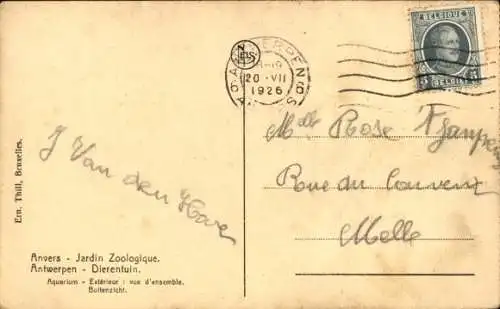 BELGIQUE
5 5
NELS
20 - VII
1926
J Van den Hove
Mlle Rose
Rue du Couvent
Melle
Ern. Thill, Bruxelles.
Anvers - Jardin Zoologique.
Antwerpen - Dierentuin.
Aquarium - Extérieur : vue d'ensemble.
Buitenzicht.